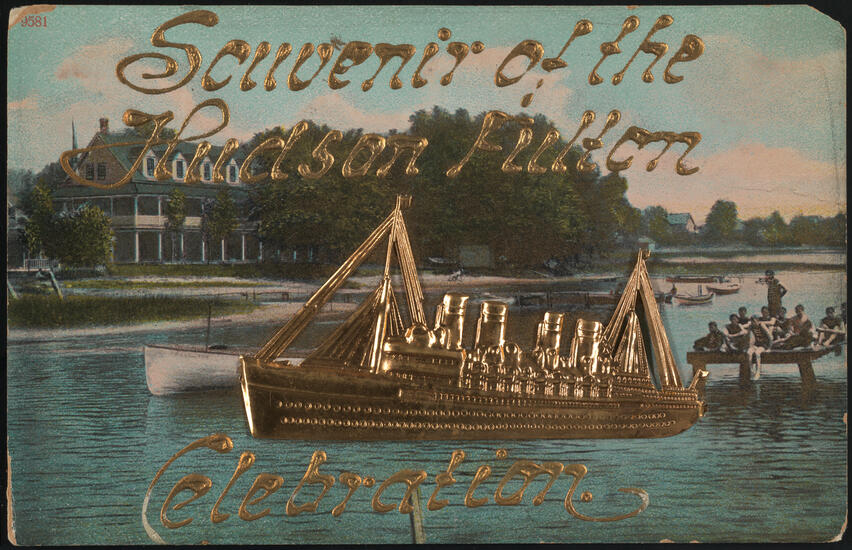 9581
Souvenir of the
Hudson Fulton
Celebration.